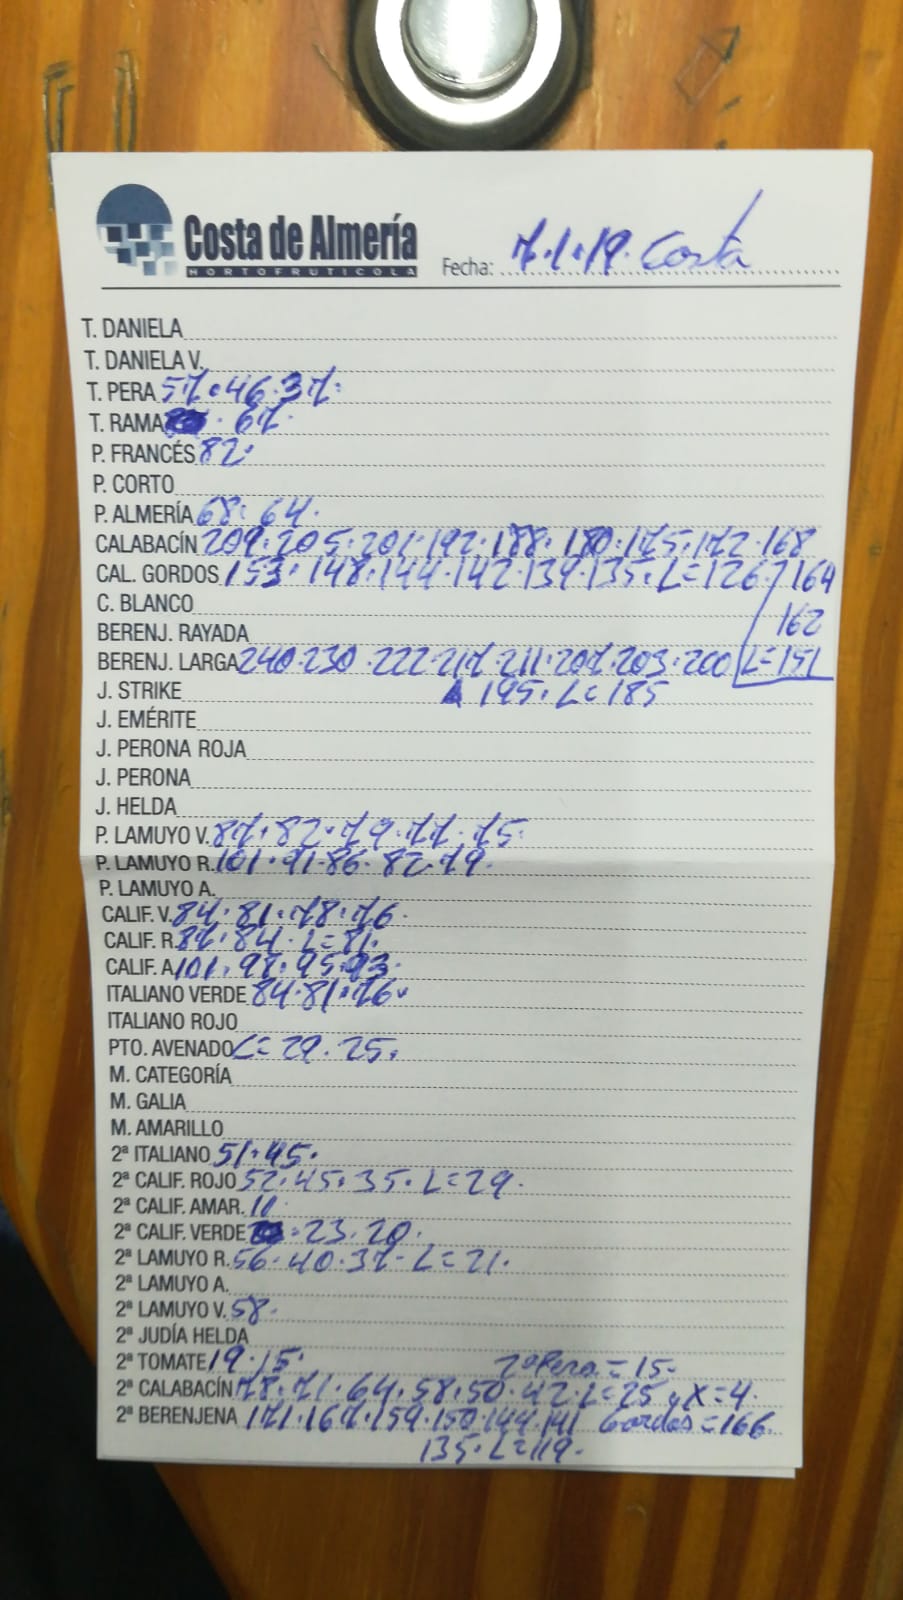 Costa de Almería
HORTOFRUTICOLA
Fecha: 7.1.19. Costa
T. DANIELA
T. DANIELA V.
T. PERA 57.46.37.
T. RAMA . 67.
P. FRANCÉS 82.
P. CORTO
P. ALMERÍA 68. 64.
CALABACÍN 209.205.201.192.188.180.175.172.168
164
162
L=151
CAL. GORDOS 153.148.144.142.139.135.L=126.
C. BLANCO
BERENJ. RAYADA
BERENJ. LARGA 240.230.222.217.211.207.203.200
195. L=185
J. STRIKE
J. EMÉRITE
J. PERONA ROJA
J. PERONA
J. HELDA
P. LAMUYO V. 87.82.79.77.75.
P. LAMUYO R. 101.91.86.82.79.
P. LAMUYO A.
CALIF. V. 84.81.78.76.
CALIF. R. 87.84. L=81.
CALIF. A 101.98.95.93.
ITALIANO VERDE 84.81.76.
ITALIANO ROJO
PTO. AVENADO L=29.25.
M. CATEGORÍA
M. GALIA
M. AMARILLO
2ª ITALIANO 51.45.
2ª CALIF. ROJO 52.45.35. L=29.
2ª CALIF. AMAR. 11.
2ª CALIF. VERDE . 23.20.
2ª LAMUYO R. 56.40.37. L=21.
2ª LAMUYO A.
2ª LAMUYO V. 58.
2ª JUDÍA HELDA
2ª TOMATE 19.15. 2ª Pera=15.
2ª CALABACÍN 78.71.64.58.50.42.L=25 y X=4.
2ª BERENJENA 171.167.159.150.144.141 Gordas=166.
135. L=119.